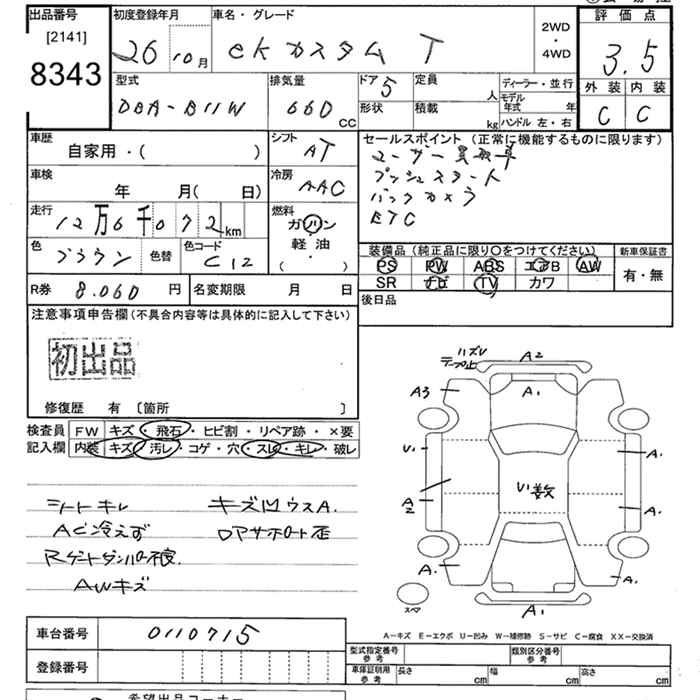 出品番号 初度登録年月 車名・グレード 評価点
[2141]
8343
26 10月 eKカスタム T
2WD
・
4WD
3.5
型式 排気量 ドア 5 定員 人 ディーラー・並行 外装 内装
DBA-B11W 660 CC 形状 積載 kg モデル年式 年 C C
ハンドル 左・右
車歴 シフト セールスポイント (正常に機能するものに限ります)
自家用・( ) AT ユーザー買取車
車検 冷房 プッシュスタート
年 月( 日) AAC バックカメラ
走行 燃料 ETC
12万6千072km ガソリン
軽油
( ・ )
色 色替 色コード 装備品 (純正品に限り○をつけてください) 新車保証書
ブラウン C12 PS PW ABS エアB AW 有・無
SR ナビ TV カワ
R券 8.060 円 名変期限 月 日 後日品
注意事項申告欄(不具合内容等は具体的に記入して下さい)
初出品
修復歴 有 〔箇所 〕
検査員 FW キズ・飛石・ヒビ割・リペア跡・×要
記入欄 内装 キズ・汚レ・コゲ・穴・スレ・キレ・破レ
シートキレ キズ凹ウスA.
AC冷えず Dアサポート歪
Rゲートダンパー不良.
AWキズ
ハズレ
テープ止 A2
A3 A1
U. A.
U数
A2 A.
A. A.
スペア A1
A-キズ E-エクボ U-凹み W-補修跡 S-サビ C-腐食 XX-交換済
車台番号 0110715
型式指定番号 参考 類別区分番号 参考
登録番号 車庫証明用 参考 長さ cm 幅 cm 高さ cm
希望出品コーナー